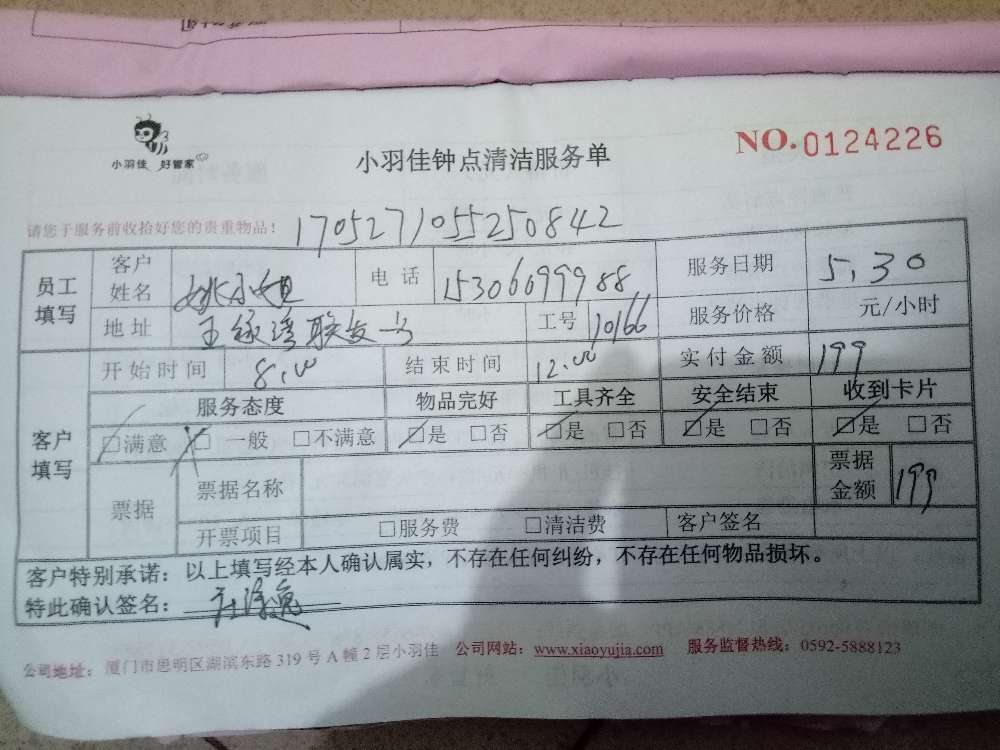 小羽佳 好管家
小羽佳钟点清洁服务单
NO.0124226
请您于服务前收拾好您的贵重物品!
1705271055250842
员工填写 客户姓名 姚小姐 电话 15306699988 服务日期 5.30
地址 工号 10166 服务价格 元/小时
客户填写 开始时间 8.00 结束时间 12.00 实付金额 199
服务态度 物品完好 工具齐全 安全结束 收到卡片
□满意 □一般 □不满意 □是 □否 □是 □否 □是 □否 □是 □否
票据 票据名称 票据金额 199
开票项目 □服务费 □清洁费 客户签名
客户特别承诺：以上填写经本人确认属实，不存在任何纠纷，不存在任何物品损坏。
特此确认签名：
公司地址：厦门市思明区湖滨东路319号A幢2层小羽佳 公司网站：www.xiaoyujia.com 服务监督热线：0592-5888123